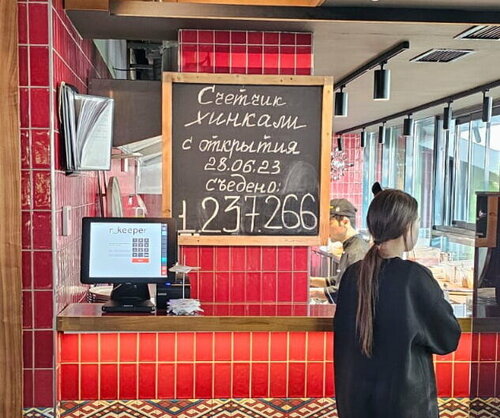 Счетчик
хинкали
с открытия
28.06.23
съедено:
1.237.266
r_keeper